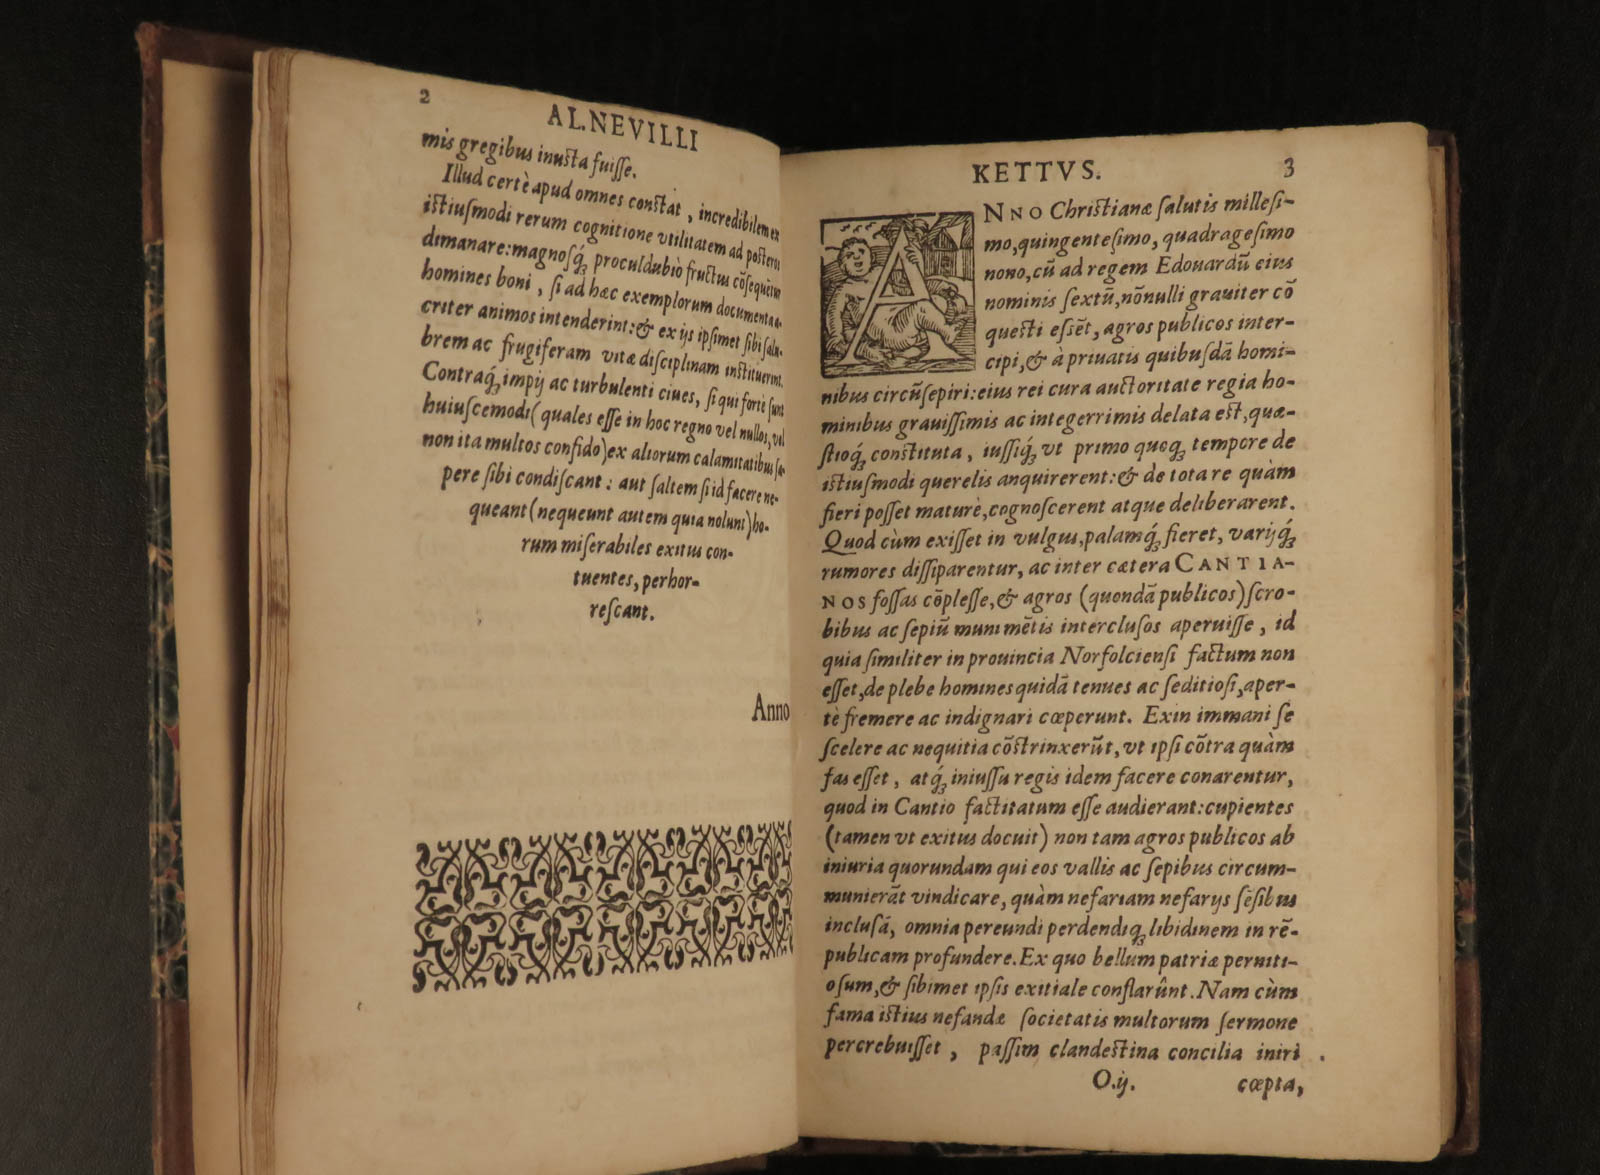 2
AL.NEVILLI
mis gregibus inusta fuisse.
Illud certè apud omnes constat, incredibilem ex
istiusmodi rerum cognitione vtilitatem ad posteros
dimanare: magnosq́ꝫ proculdubiò fructus cõsequētur
homines boni, si ad hæc exemplorum documenta a-
criter animos intenderint: & ex ijs ipsimet sibi salu-
brem ac frugiferam vitæ disciplinam instituerint.
Contraq́ꝫ impij ac turbulenti ciues, si qui fortè sunt
huiuscemodi (quales esse in hoc regno vel nullos, vel
non ita multos confido) ex aliorum calamitatibus sa-
pere sibi condiscant: aut saltem si id facere ne-
queant (nequeunt autem quia nolunt) ho-
rum miserabiles exitus con-
tuentes, perhor-
rescant.
Anno
KETTVS. 3
ANNO Christianæ salutis millesi-
mo, quingentesimo, quadragesimo
nono, cū ad regem Edouardū eius
nominis sextū, nõnulli grauiter cõ
questi essēt, agros publicos inter-
cipi, & à priuatis quibusdā homi-
nibus circūsepiri: eius rei cura auctoritate regia ho-
minibus grauissimis ac integerrimis delata est, quæ-
stioq́ꝫ constituta, iussiq́ꝫ vt primo quoqꝫ tempore de
istiusmodi querelis anquirerent: & de tota re quàm
fieri posset maturè, cognoscerent atque deliberarent.
Quod cùm exisset in vulgus, palamq́ꝫ fieret, varijq́ꝫ
rumores dissiparentur, ac inter cætera CANTIA-
NOS fossas cõplesse, & agros (quondā publicos) scro-
bibus ac sepiū munimētis interclusos aperuisse, id
quia similiter in prouincia Norfolciensi factum non
esset, de plebe homines quidā tenues ac seditiosi, aper-
tè fremere ac indignari cœperunt. Exin immani se
scelere ac nequitia cõstrinxerūt, vt ipsi cõtra quàm
fas esset, atq́ꝫ iniussu regis idem facere conarentur,
quod in Cantio factitatum esse audierant: cupientes
(tamen vt exitus docuit) non tam agros publicos ab
iniuria quorundam qui eos vallis ac sepibus circum-
munierāt vindicare, quàm nefariam nefarijs sēsibus
inclusā, omnia pereundi perdendiqꝫ libidinem in rē-
publicam profundere. Ex quo bellum patriæ perniti-
osum, & sibimet ipsis exitiale conflarûnt. Nam cùm
fama istius nefandæ societatis multorum sermone
percrebuisset, passim clandestina concilia iniri
O.ij. cœpta,